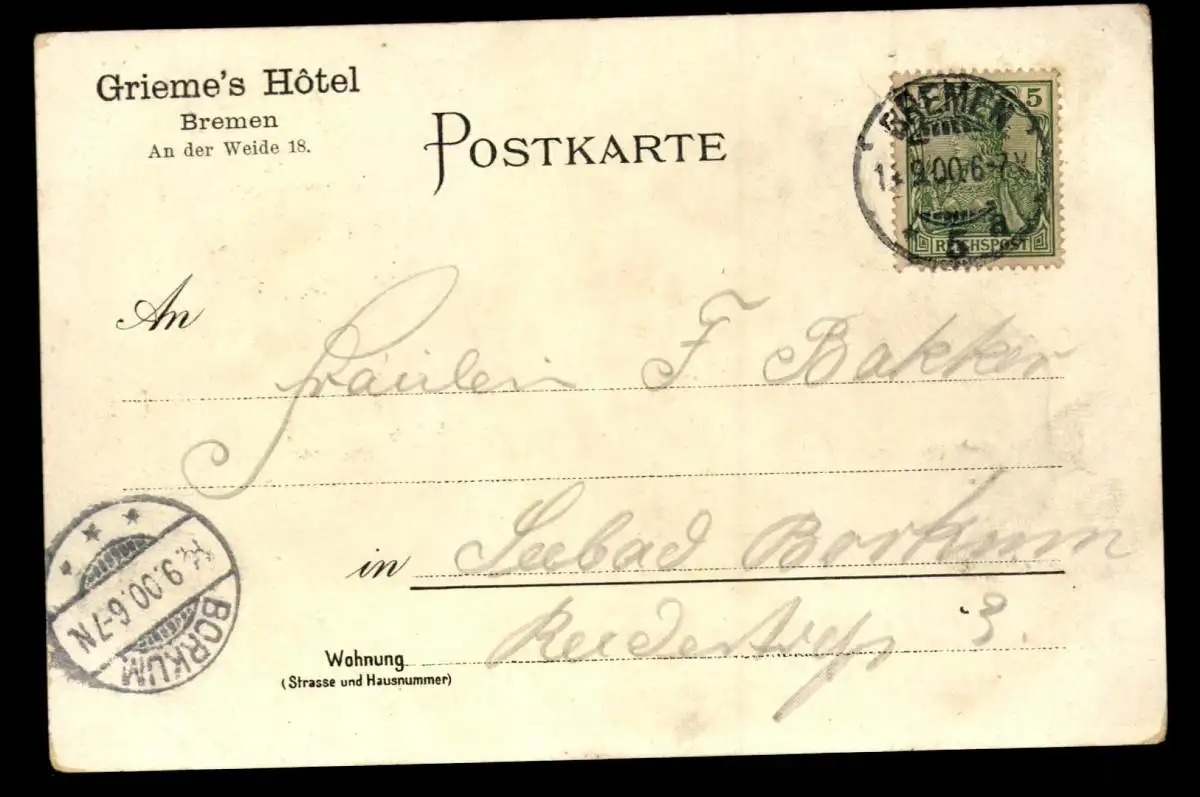 Grieme's Hôtel
Bremen
An der Weide 18.
POSTKARTE
BREMEN
9.00.6-7V
5 a
5
REICHSPOST
An
Fräulein F Bakker
in Seebad Borkum
Wohnung 3.
(Strasse und Hausnummer)
9.00.6-7N
BORKUM